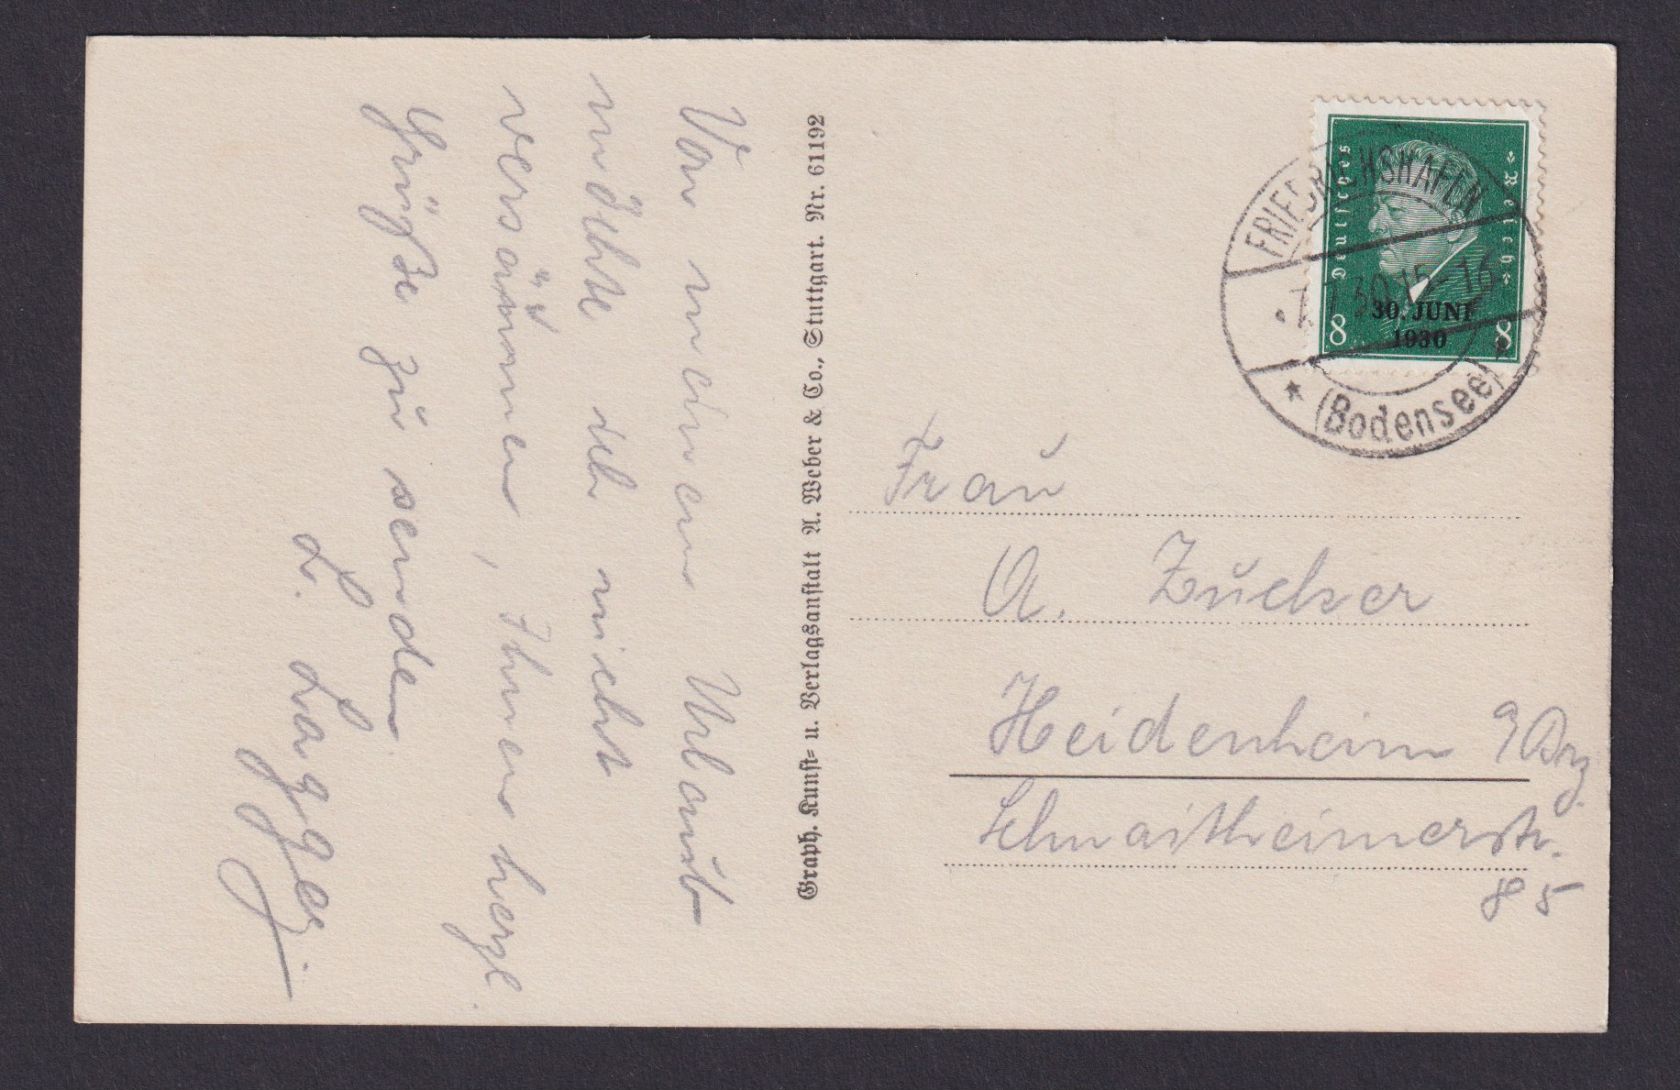 Von meinem Urlaub
möchte ich nicht
versäumen, Ihnen herzl.
Grüße zu senden
L. Lagger
Graph. Kunst- u. Verlagsanstalt A. Weber & Co., Stuttgart. Nr. 61192
Deutsches
Reich
30. JUNI
1930
8 8
FRIEDRICHSHAFEN
7.7.30.15-16
(Bodensee)
Frau
A. Zucker
Heidenheim a/Brz
Schnaitheimerstr.
85